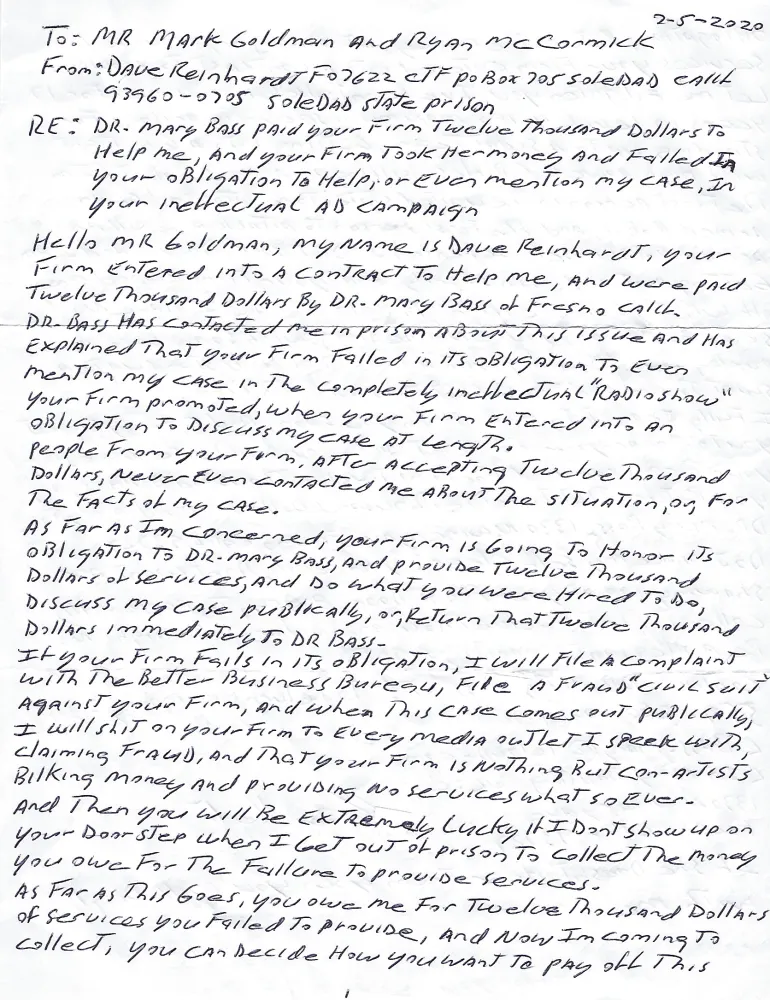 2-5-2020
To: MR MARK Goldman And Ryan McCormick
From: DAVE ReinhardT F07622 CTF poBox 705 SoleDAD CALIF
93960-0705 SoleDAD STATE prison
RE: DR. MARY BASS pAID your Firm Twelve Thousand Dollars To
Help me, And your Firm Took Her money And Failed In
your oBligation To Help, or Even mention my CASE, In
your ineffectual AD CAMpAign
Hello MR Goldman, my NAME is DAVE ReinhardT, your
Firm EnTered inTo A conTRACT To Help me, And were paid
Twelve Thousand Dollars By DR. MARY BASS of Fresno CALIF.
DR. BASS HAS conTacTed me in prison ABouT This issue And HAS
ExplAined ThaT your Firm Failed in iTs oBligATion To Even
menTion my CASE in The compleTely ineffecTuAl "RADioshow"
your Firm promoTed, when your Firm EnTered inTo An
oBligATion To Discuss my CASE AT LengTh.
People From your Firm, AfTer AccepTing Twelve Thousand
Dollars, Never Even conTacTed me ABouT The siTuATion, or, For
The FacTs of my CASE.
AS FAR As Im concerned, your Firm is Going To Honor iTs
oBligATion To DR. MARY BASS, And provide Twelve Thousand
Dollars of services, And Do whaT you were Hired To Do,
Discuss my CASE puBlically, or, ReTurn ThaT Twelve Thousand
Dollars immediATely To DR BASS-
If your Firm Fails in iTs oBligATion, I will File A complainT
wiTh The BeTTer Business Bureau, File A FRAUD "civil suiT"
AgainsT your Firm, And when This CASE comes ouT puBlically,
I will shiT on your Firm To Every mediA ouTleT I speek wiTh,
claiming FRAUD, And ThaT your Firm is NoThing BuT con-ArTisTs
Bilking money And providing No services whaT so Ever.
And Then you will Be ExTremely Lucky if I DonT show up on
your DoorsTep when I GeT ouT of prison To collecT The money
you owe For The Failure To provide services.
AS FAR AS This Goes, you owe me For Twelve Thousand Dollars
of services you Failed To provide, And Now Im coming To
collecT, you CAN Decide How you wanT To pay off This
1